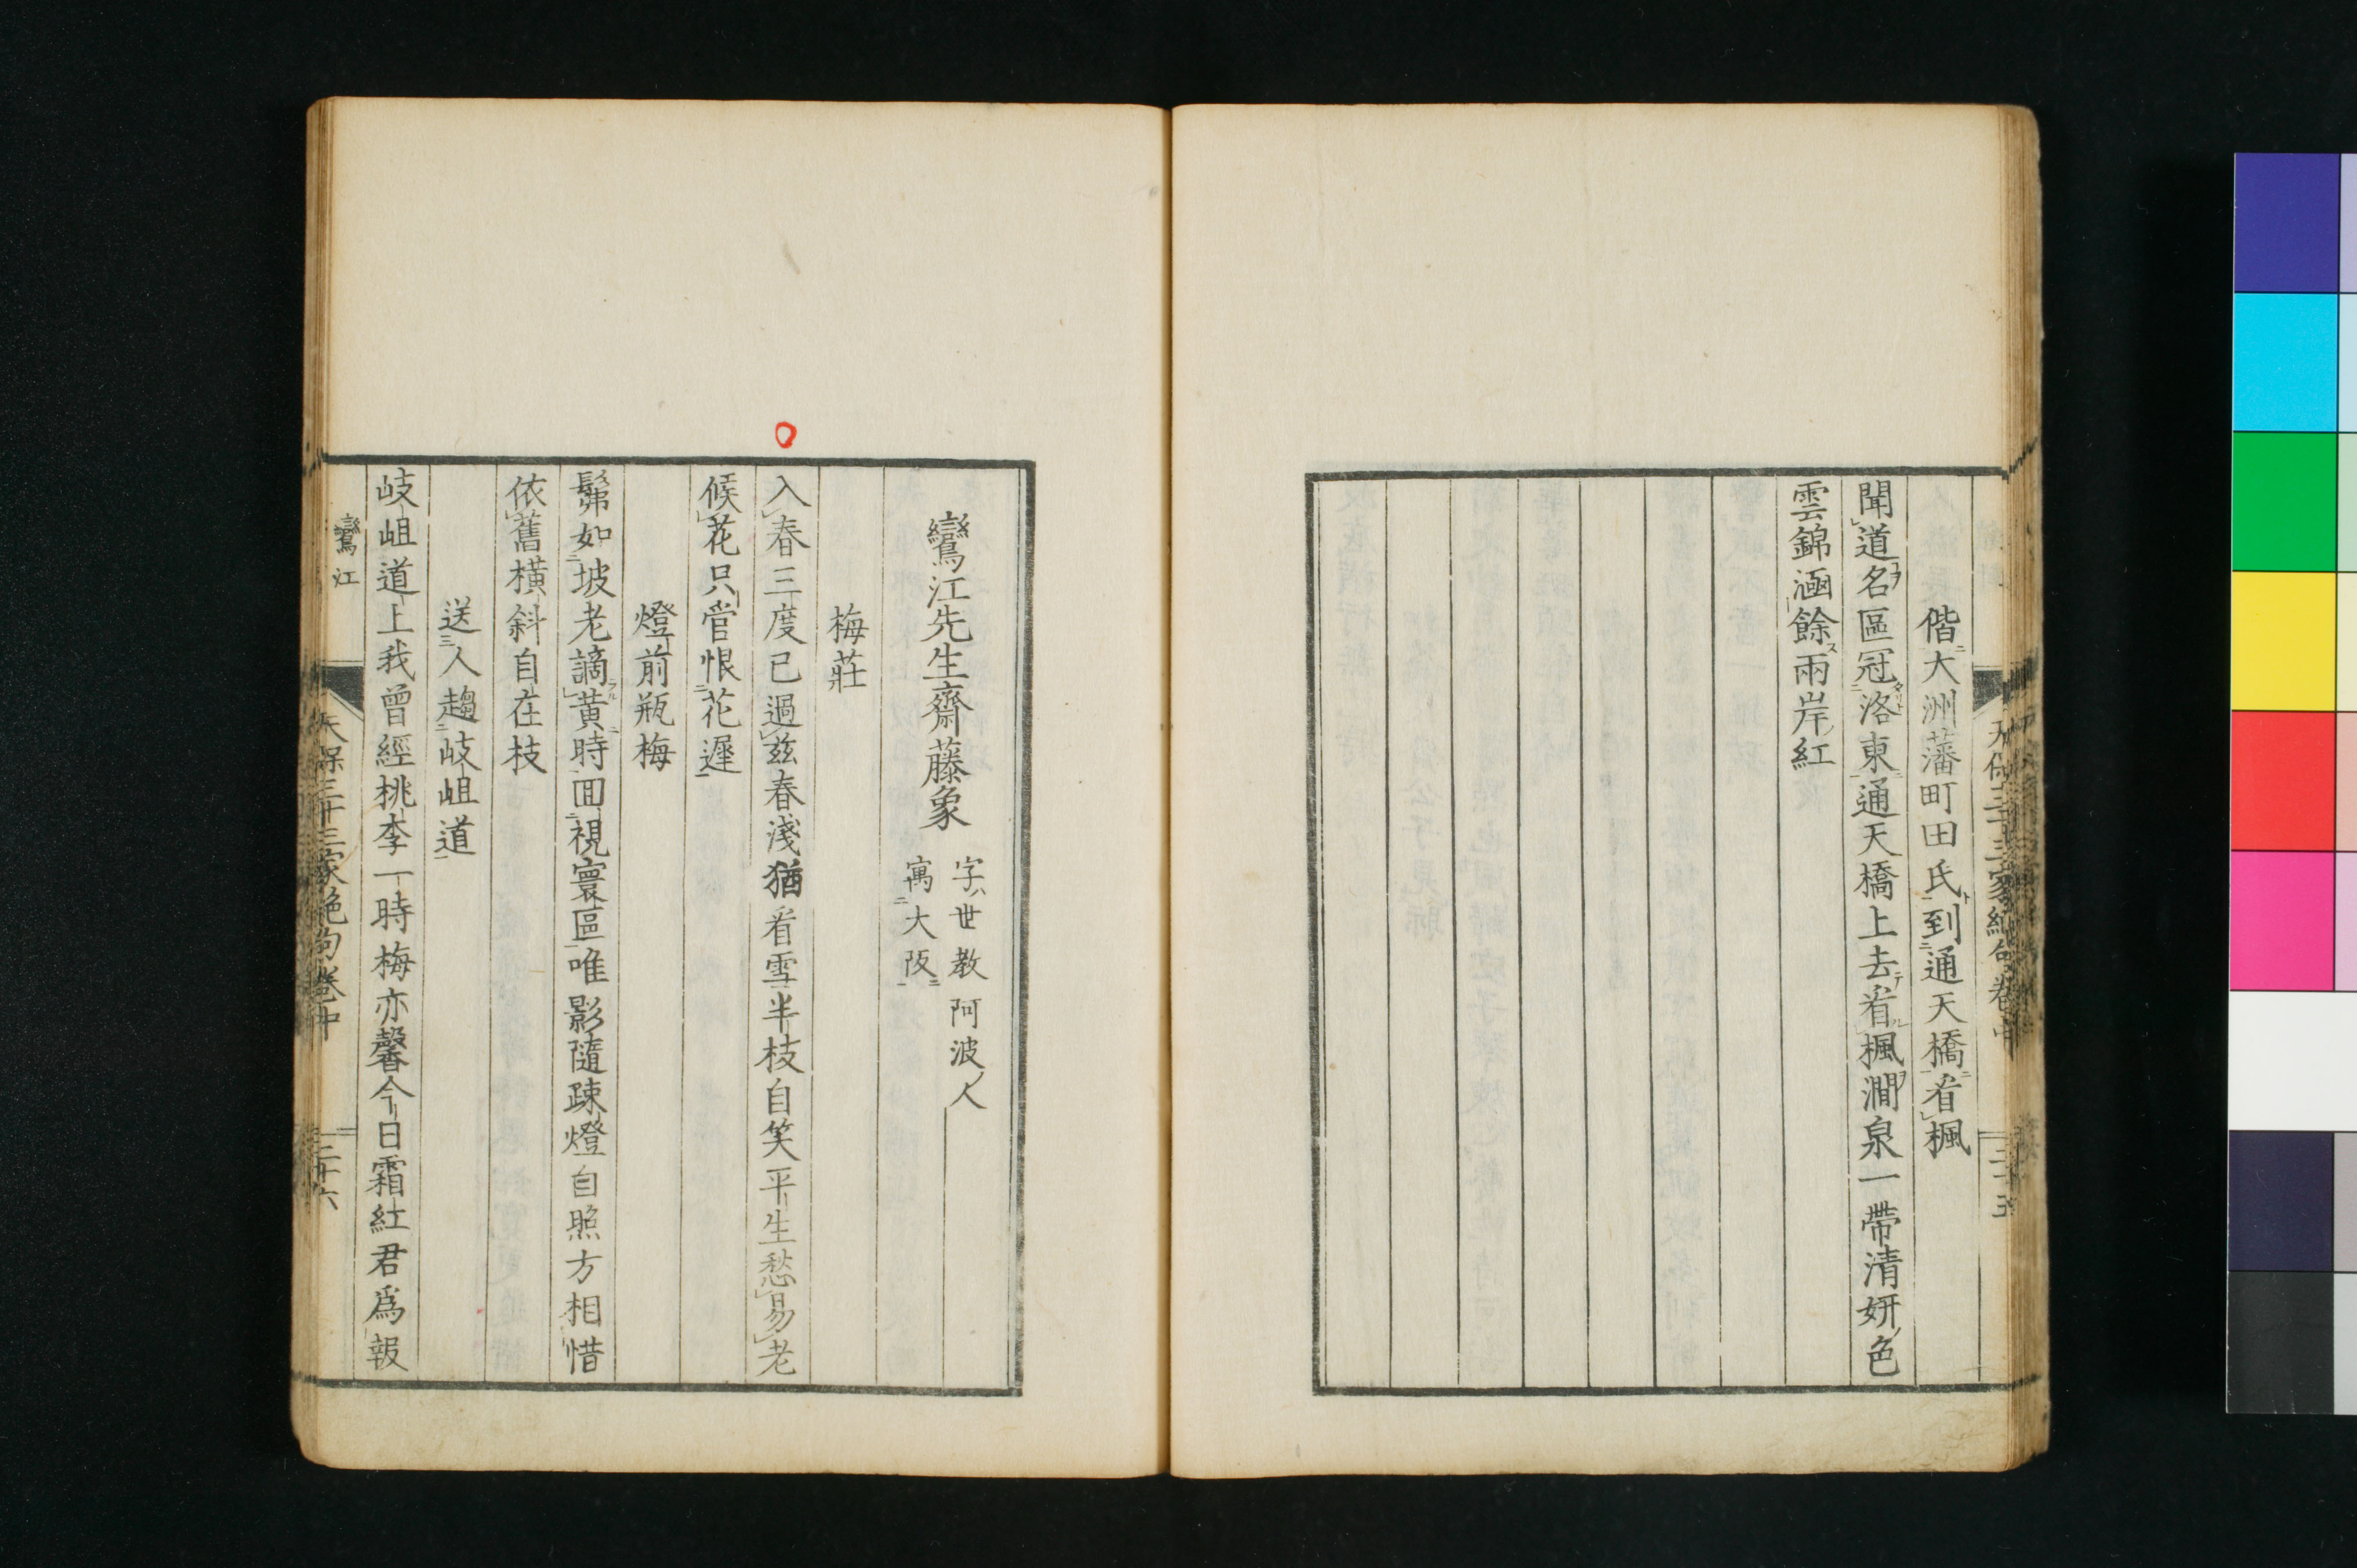 偕大洲藩町田氏到通天橋看楓
聞道名區冠洛東通天橋上去看楓澗泉一帶清妍色
雲錦涵餘兩岸紅
天保三十三家絕句卷中
二十五
鸞江先生齋藤象
字世教阿波人
寓大阪
梅莊
入春三度已過茲春淺猶看雪半枝自笑平生愁易老
候花只管恨花遲
燈前瓶梅
髴如坡老謫黃時回視寰區唯影隨疎燈自照方相惜
依舊橫斜自在枝
送人趨岐岨道
岐岨道上我曾經桃李一時梅亦馨今日霜紅君爲報
鸞江
天保三十三家絕句卷中
二十六